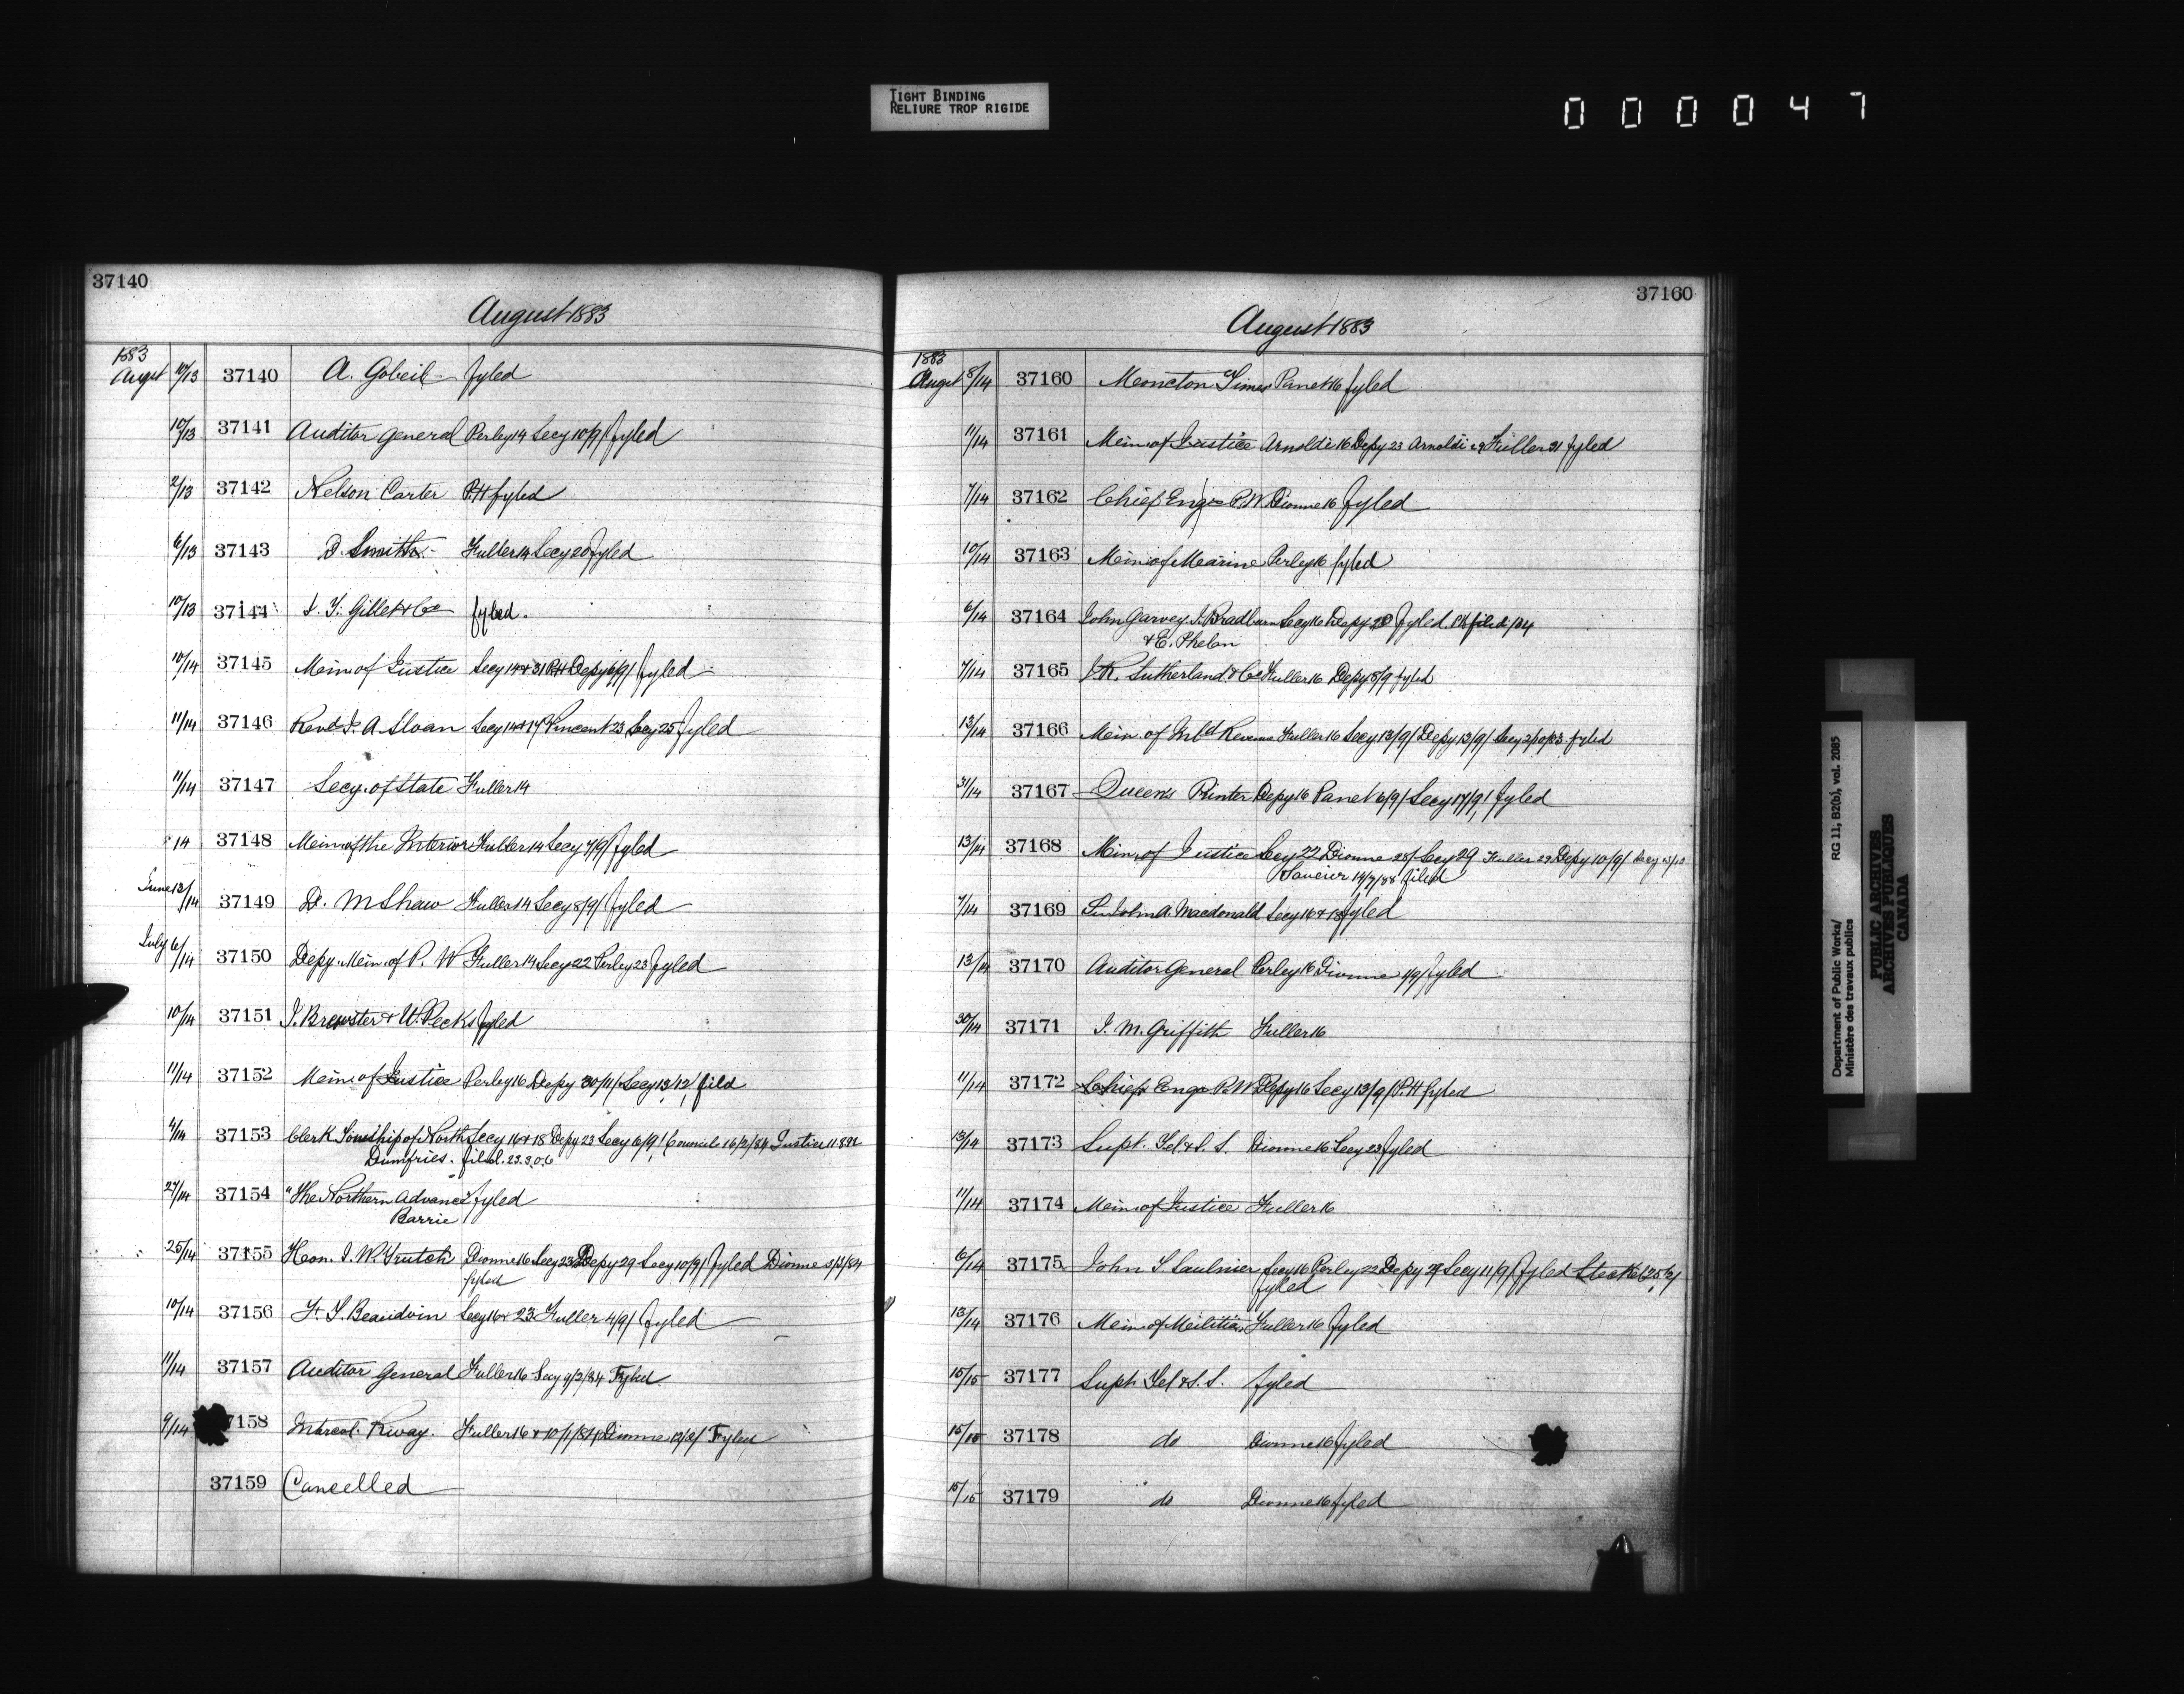 TIGHT BINDING
RELIURE TROP RIGIDE
000047
37140
August 1883
1883
Augst 10/13 37140 A. Gobeil fyled
10/13 37141 Auditor General Perley 14 Secy 10/9/ fyled
2/13 37142 Nelson Carter P.H fyled
6/13 37143 D. Smith Fuller 14 Secy 20 fyled
10/13 37144 Gillet & Co fyled.
10/14 37145 Min. of Justice Secy 14 & 31 P.H Depy 6/9/ fyled
11/14 37146 Revd J. A Sloan Secy 14 & 17 Vincent 23 Secy 25 fyled
11/14 37147 Secy. of State Fuller 14
14 37148 Min. of the Interior Fuller 14 Secy 7/9/ fyled
June 13/14 37149 D. M Shaw Fuller 14 Secy 8/9/ fyled
July 6/14 37150 Depy. Min. of P. W Fuller 14 Secy 22 Perley 23 fyled
10/14 37151 J. Brewster & W. Pecks fyled
11/14 37152 Min. of Justice Perley 16 Depy 30/11/ Secy 13/12/ fild
4/14 37153 Clerk Township of North Secy 16 & 18 Depy 23 Secy 6/9/ Council 16/2/84 Justice 11892
Dumfries. filed. 23.3.06
27/14 37154 "The Northern Advance" fyled
Barrie
25/14 37155 Hon. J. W. Trutch Dionne 16 Secy 23 Depy 29 Secy 10/9/ fyled Dionne 3/3/84
fyled
10/14 37156 F. S. Beaudoin Secy 16 & 23 Fuller 4/9/ fyled
11/14 37157 Auditor General Fuller 16 Secy 9/2/84 Fyled
9/14 7158 Intercol. Rway. Fuller 16 & 10/1/84 Dionne 12/2/ Fyled
37159 Cancelled
37160
August 1883
1883
Augst 8/14 37160 Moncton Times Panet 16 fyled
11/14 37161 Min. of Justice Arnoldi 16 Depy 23 Arnoldi 29 Fuller 31 fyled
7/14 37162 Chief Engr P.W Dionne 16 fyled
10/14 37163 Min. of Marine Perley 16 fyled
6/14 37164 John Garvey J. Bradburn Secy 16 Depy 28 fyled
& E. Phelan
7/14 37165 J.R. Sutherland & Co Fuller 16 Depy 5/9 fyled
13/14 37166 Min. of Inld Revenue Fuller 16 Secy 13/9/ Depy 13/9/ Secy 2/10/83 fyled
31/14 37167 Queens Printer Depy 16 Panet 6/9/ Secy 17/9/ fyled
13/14 37168 Min. of Justice Secy 22 Dionne 28/ Secy 29 Fuller 29 Depy 10/9/ Secy 13/10
14/7/88 filed
7/14 37169 Sir John A. Macdonald Secy 16 & 18 fyled
13/14 37170 Auditor General Perley 16 Dionne 1/9/ fyled
30/14 37171 J. M. Griffith Fuller 16
11/14 37172 Chief Engr P.W Depy 16 Secy 13/9/ P.H fyled
13/14 37173 Supt. Tel. & S. S. Dionne 16 Secy 23 fyled
11/14 37174 Min. of Justice Fuller 16
6/14 37175 John S. Saulnier Secy 16 Perley 22 Depy 29 Secy 11/9/ fyled Steckel 25/2/
fyled
13/14 37176 Min. of Militia Fuller 16 fyled
15/15 37177 Supt. Tel & S. S. fyled
15/15 37178 do Dionne 16 fyled
15/15 37179 do Dionne 16 fyled
Department of Public Works/
Ministère des travaux publics
RG 11, B2(b), vol. 2085
PUBLIC ARCHIVES
ARCHIVES PUBLIQUES
CANADA